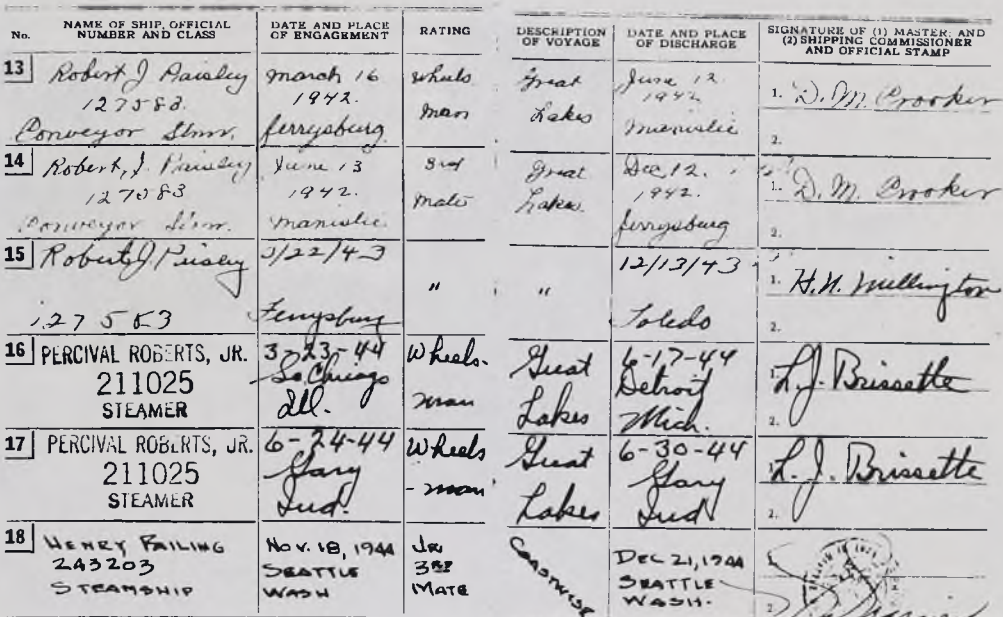 No.
NAME OF SHIP, OFFICIAL
NUMBER AND CLASS
DATE AND PLACE
OF ENGAGEMENT
RATING
DESCRIPTION
OF VOYAGE
DATE AND PLACE
OF DISCHARGE
SIGNATURE OF (1) MASTER; AND
(2) SHIPPING COMMISSIONER
AND OFFICIAL STAMP
13
Robert J Paisley
127583.
Conveyor Stmr.
March 16
1942.
ferrysburg
Wheels
man
Great
Lakes
June 12
1942
Manistie
1. D. M. Crooker
2.
14
Robert, J. Paisley
127583
Conveyor Stmr.
June 13
1942.
Manistie
3rd
Mate
Great
Lakes
Dec 12.
1942.
ferrysburg
1. D. M. Crooker
2.
15
Robert J. Paisley
127583
3/22/43
Ferrysburg
"
"
12/13/43
Toledo
1. H.N. Millington
2.
16
PERCIVAL ROBERTS, JR.
211025
STEAMER
3-23-44
So. Chicago
Ill.
Wheels-
man
Great
Lakes
6-17-44
Detroit
Mich.
1. L.J. Brissette
2.
17
PERCIVAL ROBERTS, JR.
211025
STEAMER
6-24-44
Gary
Ind.
Wheels
-man
Great
Lakes
6-30-44
Gary
Ind
1. L.J. Brissette
2.
18
HENRY FAILING
243203
STEAMSHIP
Nov. 18, 1944
SEATTLE
WASH
JR
3RD
MATE
COASTWISE
DEC 21, 1944
SEATTLE
WASH.
2